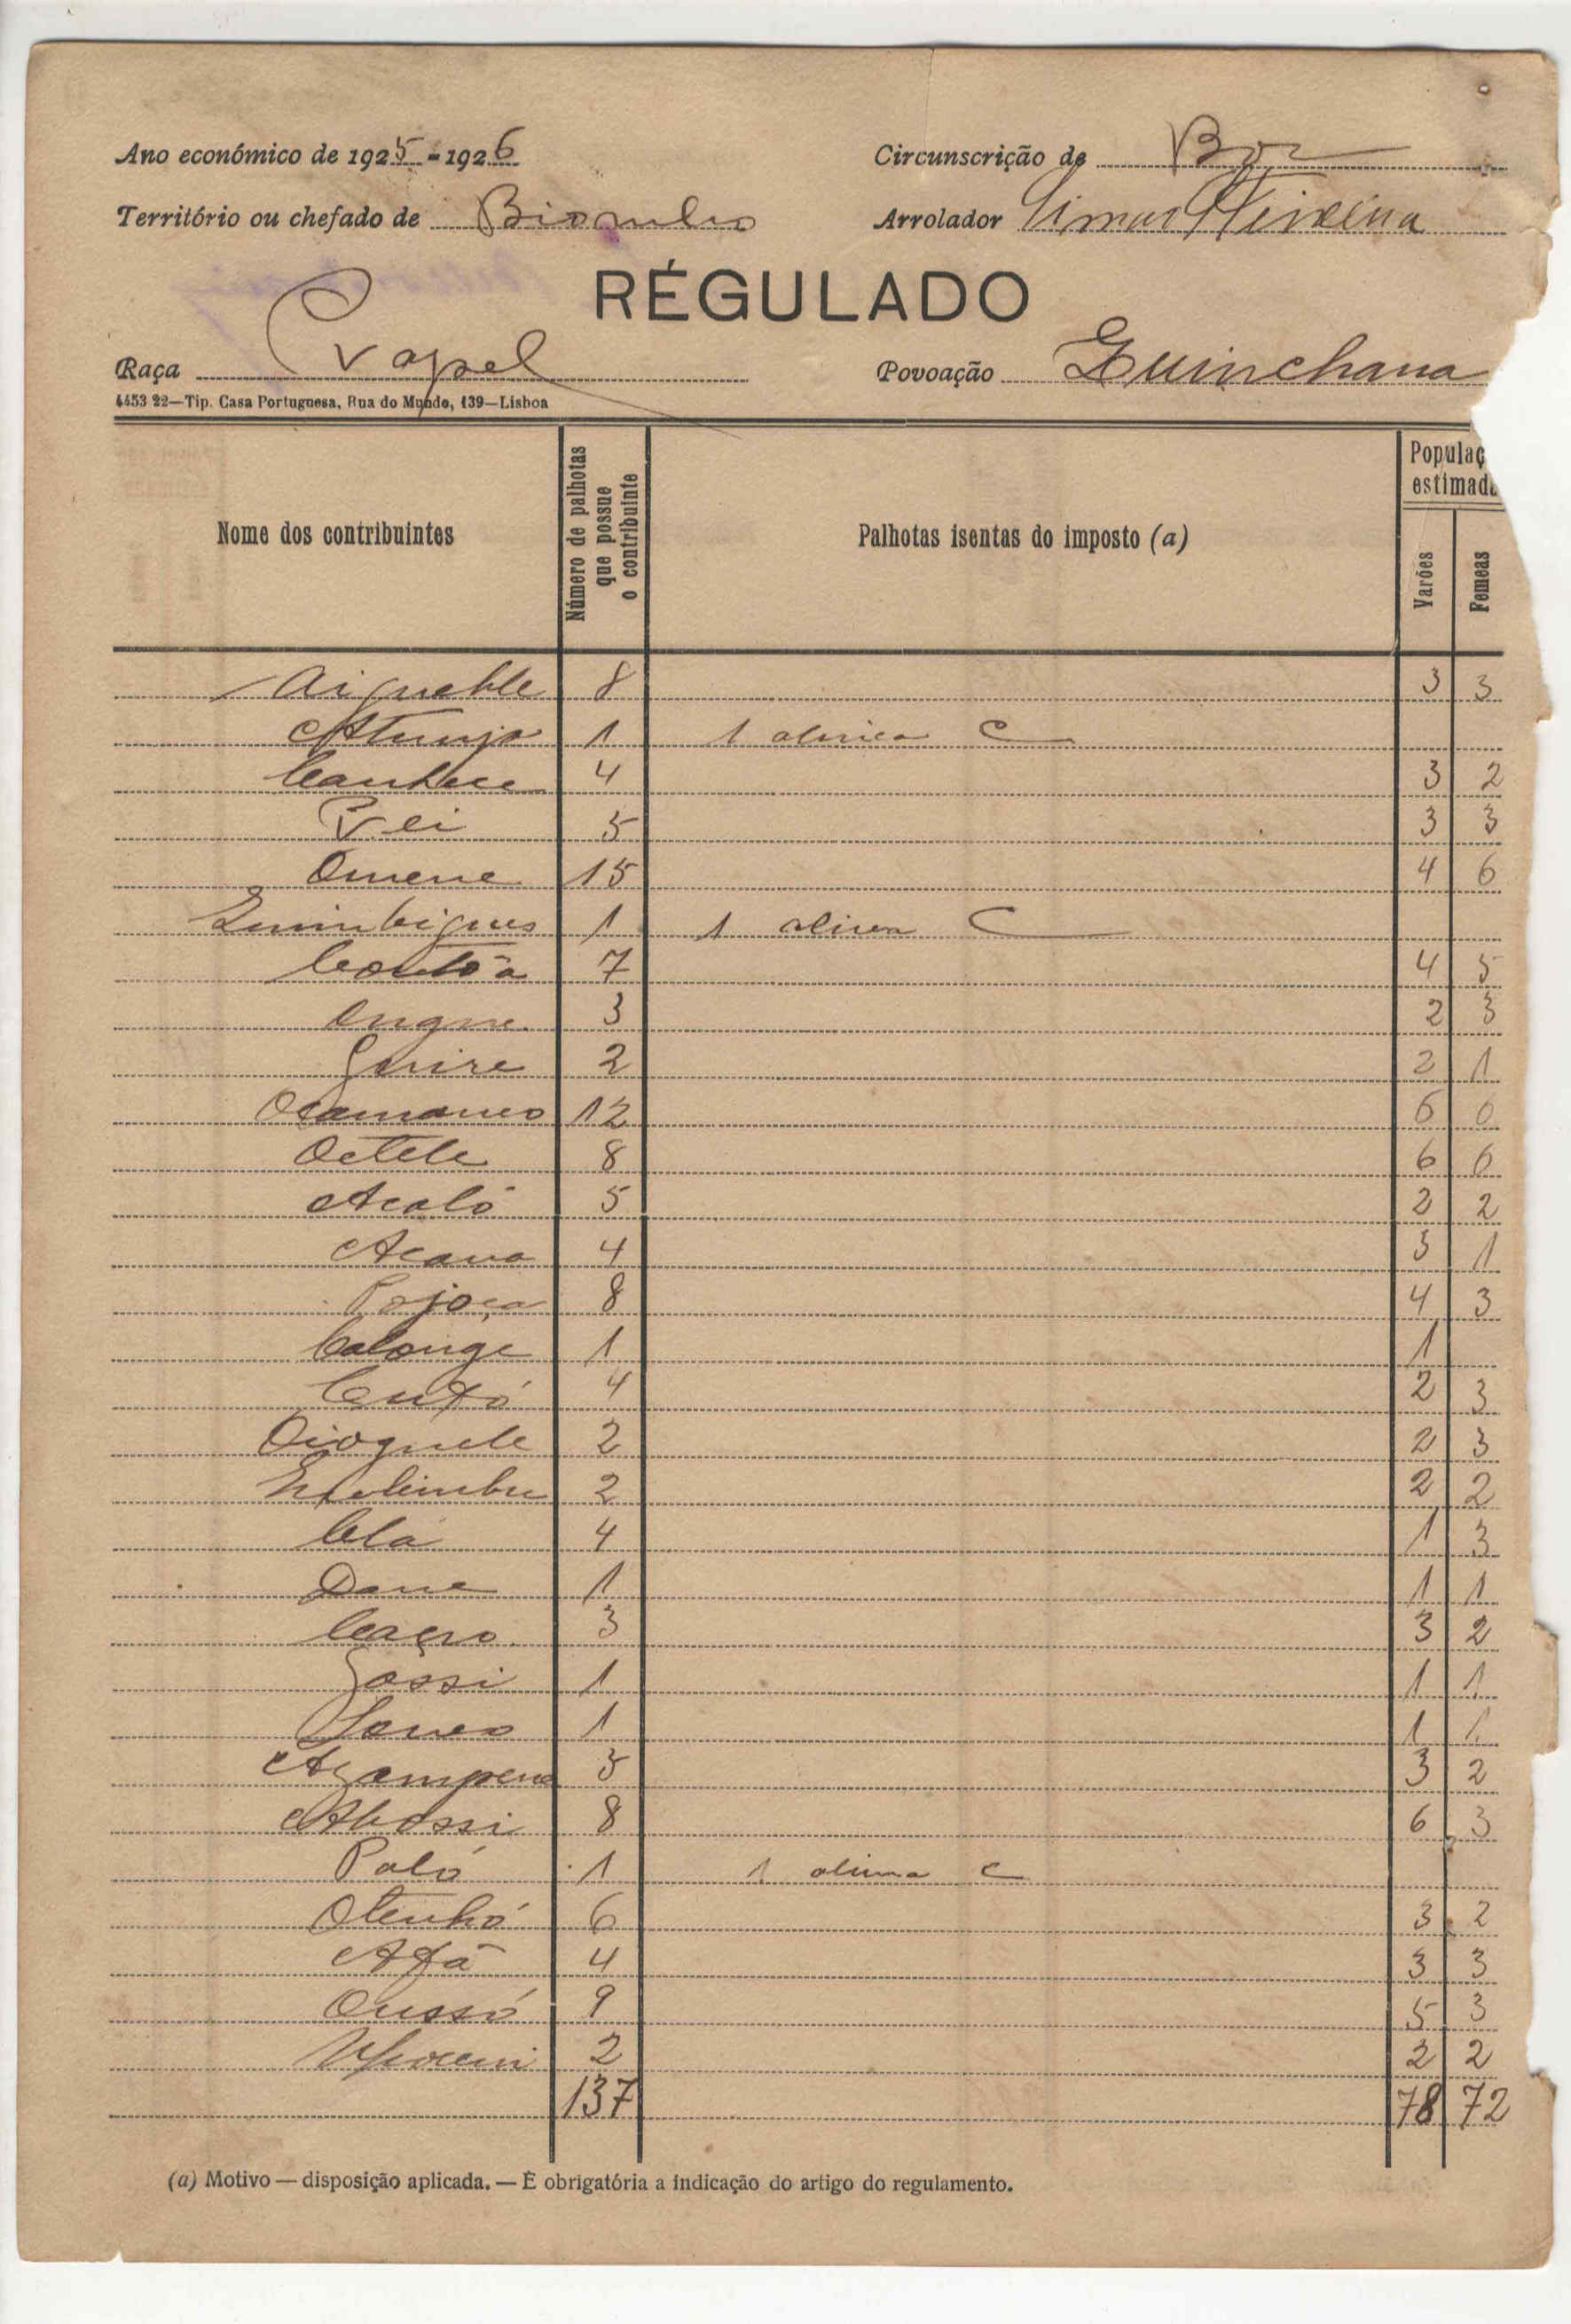 Ano económico de 1925-1926 Circunscrição de Bor
Território ou chefado de Biombo Arrolador Teixeira
RÉGULADO
Raça Papel Povoação Quinchana
4453 22—Tip. Casa Portuguesa, Rua do Mundo, 139—Lisboa
Nome dos contribuintes Número de palhotas que possue o contribuinte Palhotas isentas do imposto (a) Populaç estimad Varões Femeas
8 3 3
1 1 alinea C
Canhece 4 3 2
5 3 3
Omene 15 4 6
1 1 alinea C
7 4 5
Ongue 3 2 3
Quire 2 2 1
12 6 6
Octele 8 6 6
Acaló 5 2 2
Acana 4 3 1
Pojoça 8 4 3
Calonge 1 1
4 2 3
Dioguele 2 2 3
2 2 2
Clá 4 1 3
Dane 1 1 1
3 3 2
1 1 1
1 1 1
3 2
Abossi 8 6 3
Paló 1 1 alinea C
Otenhó 6 3 2
Afá 4 3 3
Oussó 9 5 3
2 2 2
137 78 72
(a) Motivo — disposição aplicada. — É obrigatória a indicação do artigo do regulamento.